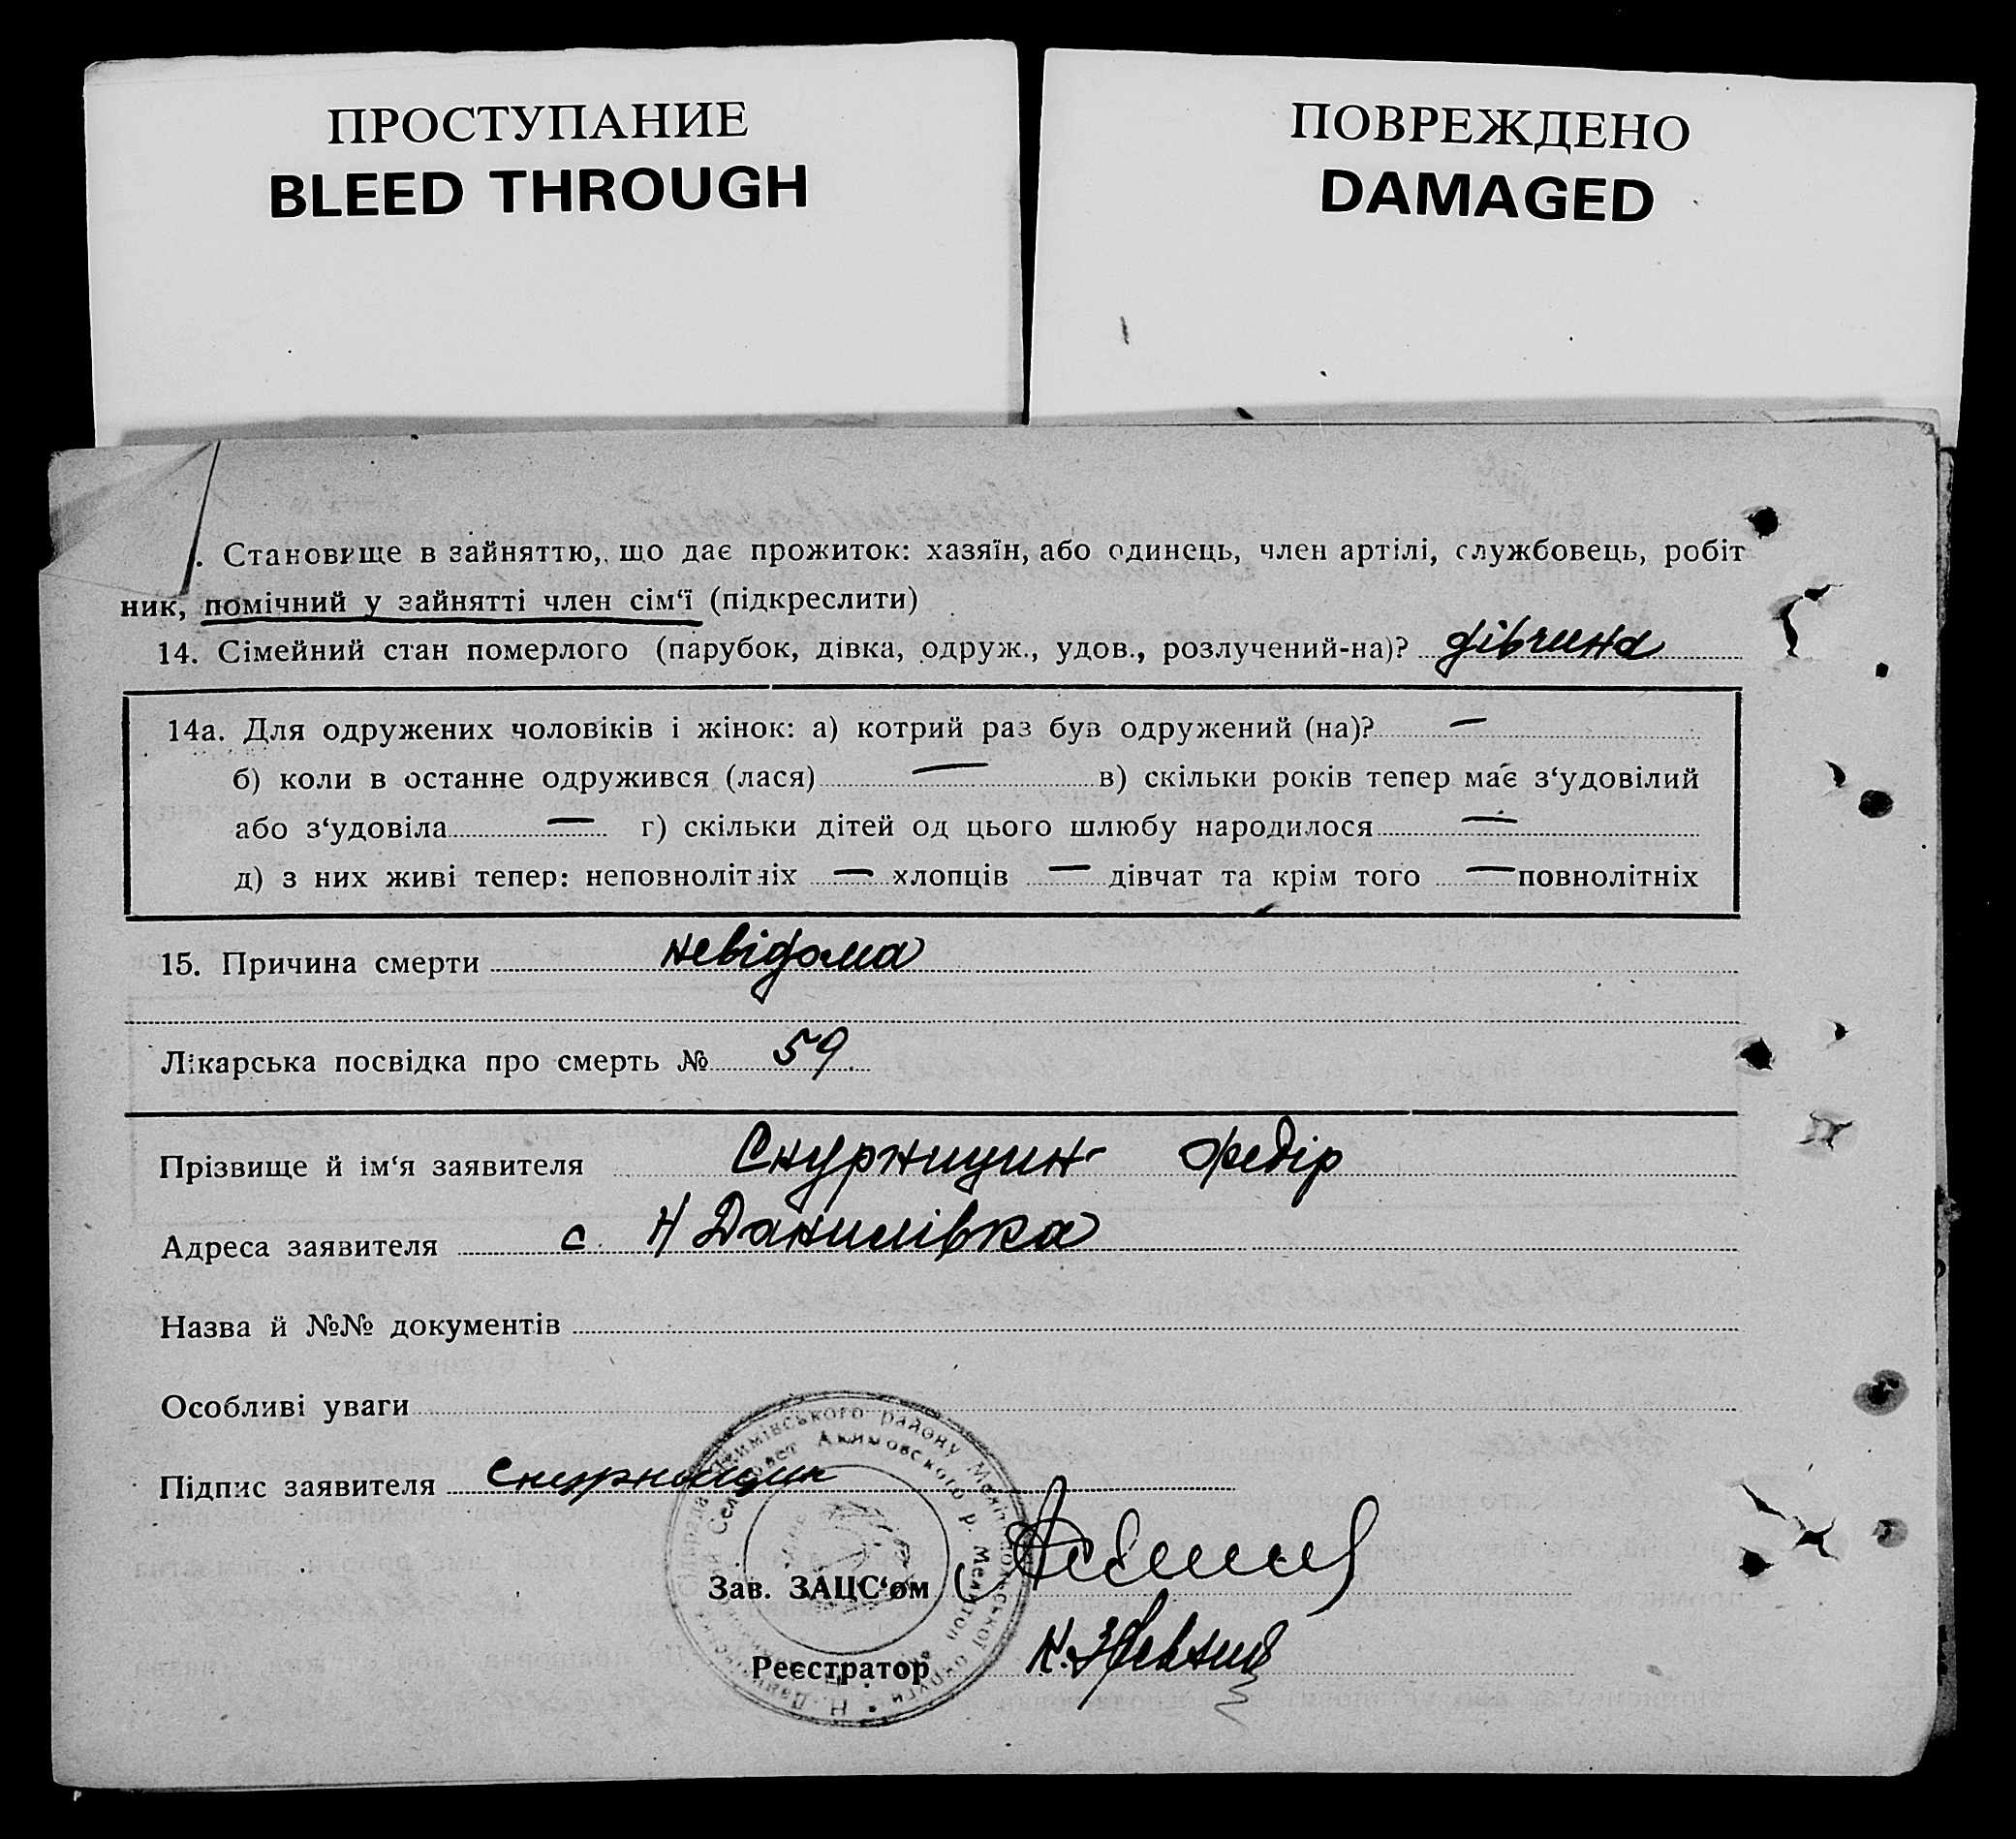 ПРОСТУПАНИЕ
BLEED THROUGH
ПОВРЕЖДЕНО
DAMAGED
. Становище в зайняттю, що дає прожиток: хазяїн, або одинець, член артілі, службовець, робіт
ник, помічний у зайнятті член сім‘ї (підкреслити)
14. Сімейний стан померлого (парубок, дівка, одруж., удов., розлучений-на)? дівчина
14а. Для одружених чоловіків і жінок: а) котрий раз був одружений (на)? —
б) коли в останне одружився (лася) — в) скільки років тепер має з‘удовілий
або з‘удовіла — г) скільки дітей од цього шлюбу народилося —
д) з них живі тепер: неповнолітніх — хлопців — дівчат та крім того — повнолітніх
15. Причина смерти невідома
Лікарська посвідка про смерть № 59.
Прізвище й ім‘я заявителя Скурнищин Федір
Адреса заявителя с. Н Данилівка
Назва й №№ документів
Особливі уваги
Підпис заявителя Скурнищин
Зав. ЗАЦС‘ом
Реєстратор
Н. Данилівська Сільрада Якимівського району Мелітопольської округи
Сельсовет Акимовского р. Мелитоп